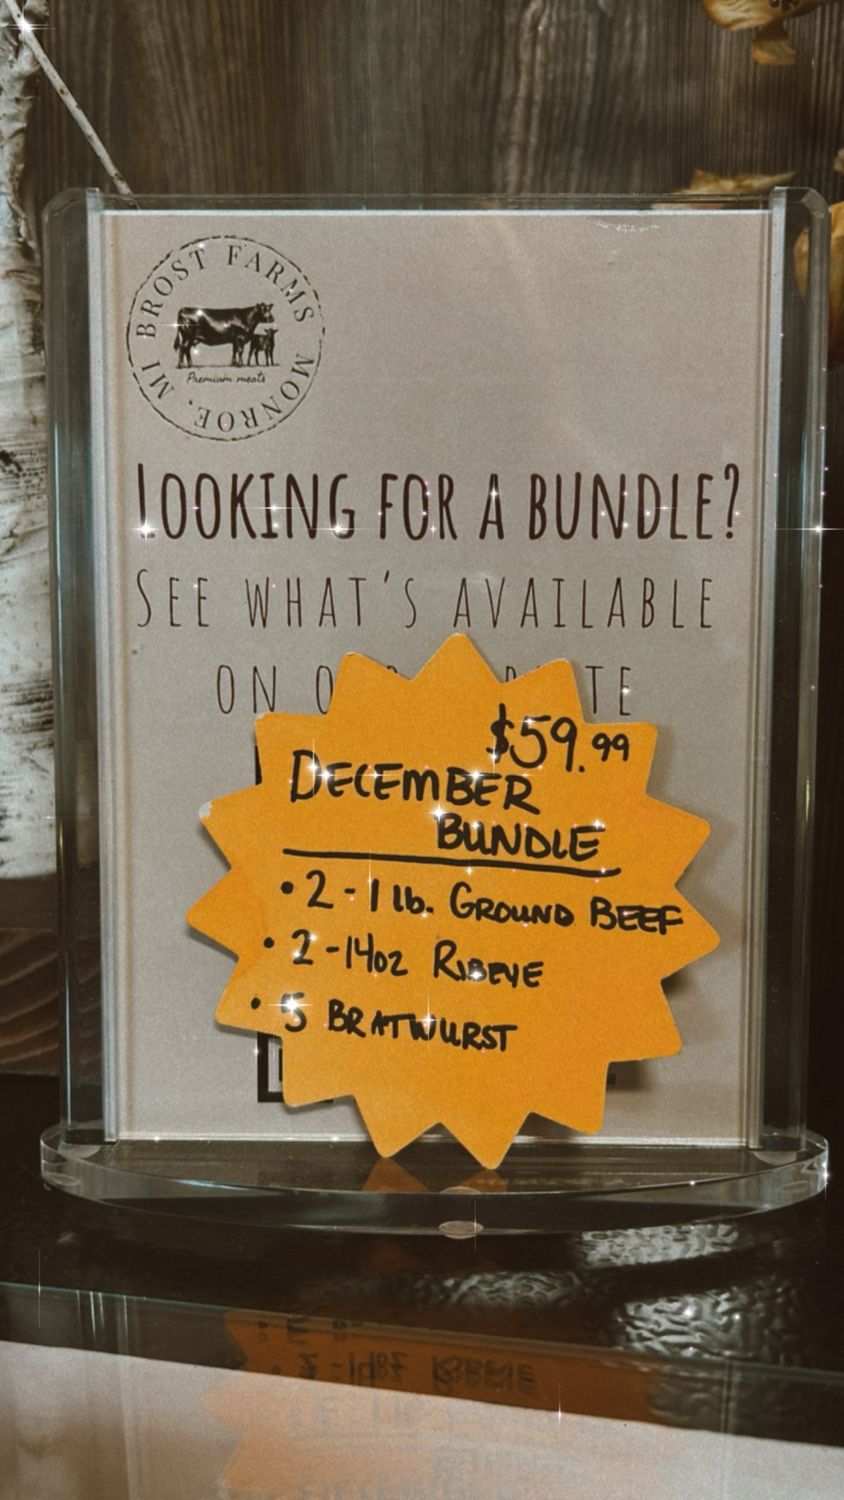 BROST FARMS
MONROE, MI
Premium meats
LOOKING FOR A BUNDLE?
SEE WHAT'S AVAILABLE
ON
$59.99
DECEMBER
BUNDLE
• 2 - 1 lb. GROUND BEEF
• 2 - 14oz RIBEYE
• 5 BRATWURST